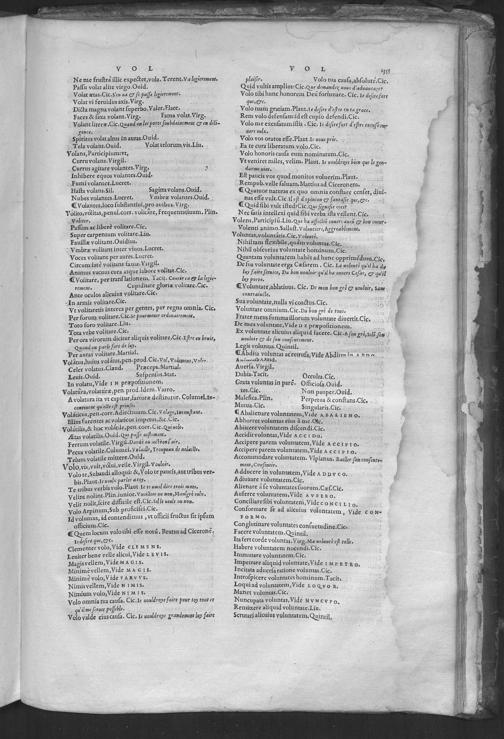 V O L
Ne me frustrà illic expectet, vola. Terent. Va legierement.
Passu volat alite virgo. Ouid.
Volat ætas. Cic. S'en va & se passe legierement.
Volat vi feruidus axis. Virg.
Dicta magna volant superbo. Valer. Flacc.
Faces & saxa volant. Virg. Fama volat. Virg.
Volant literæ. Cic. Quand on les porte soubdainement & en diligence.
Spiritus volat altus in auras. Ouid.
Tela volant. Ouid. Volat telorum vis. Liu.
Volans, Participium. vt,
Curru volans. Virgil.
Currus agitare volantes. Virg.
Inhibere equos volantes. Ouid.
Fumi volantes. Lucret.
Hasta volans. Sil. Sagitta volans. Ouid.
Nubes volantes. Lucret. Vmbræ volantes. Ouid.
¶ Volantes, loco substantiui, pro auibus. Virg.
Volito, volitas, penul. corr. volitare, Frequentatiuum. Plin. Voleter.
Passim ac liberè volitare. Cic.
Super carpentum volitare. Liu.
Fauillæ volitant. Ouidius.
Vmbræ volitant inter viuos. Lucret.
Voces volitant per aures. Lucret.
Circum stat volitans fauus. Virgil.
Animus vacuus cura atque labore volitat. Cic.
¶ Volitare, per translationem. Tacit. Courir ça & là legierement. Cupiditate gloriæ volitare. Cic.
Ante oculos alicuius volitare. Cic.
In armis volitare. Cic.
Vt volitaretis interea per gentes, per regna omnia. Cic.
Per forum volitare. Cic. Se pourmener ordinairement.
Toto foro volitare. Liu.
Tota vrbe volitare. Cic.
Per ora virorum dicitur aliquis volitare. Cic. Estre en bruit, Quand on parle fort de luy.
Per auras volitare. Martial.
Volatus, huius volatus, pen. prod. Cic. Vol, Volement, Volee.
Celer volatus. Claud. Præceps. Martial.
Leuis. Ouid. Suspensus. Stat.
In volatu, Vide I N præpositionem.
Volatura, volaturæ, pen. prod. Idem. Varro.
A volatura ita vt capitur, farturæ destinatur. Columel. Incontinent qu'elle est prinse.
Volaticus, pen. corr. Adiectiuum. Cic. Volage, Inconstant.
Illius furentes ac volaticos impetus, &c. Cic.
Volatilis, & hoc volatile, pen. corr. Cic. Qui vole.
Ætas volatilis. Ouid. Qui passe vistement.
Ferrum volatile. Virgil. Dards ou autres trait.
Pecus volatile. Columel. Volaille, Troupeau de volaille.
Telum volatile mittere. Ouid.
Volo, vis, vult, volui, velle. Virgil. Vouloir.
Volo te, Subaudi alloqui: &, Volo te paucis, aut tribus verbis. Plaut. Ie veulx parler à toy.
Te tribus verbis volo. Plaut. Ie te veul dire trois mots.
Velitis nolint. Plin. iunior. Vueillent ou non, Maulgré eulx.
Velit nolit, scire difficile est. Cic. S'il le veult ou non.
Volo Arpinum, Sub proficisci. Cic.
Id volumus, id contendimus, vt officii fructus sit ipsum officium. Cic.
¶ Quem locum volo tibi esse notu. Brutus ad Ciceronē. Ie desire que, &c.
Clementer volo, Vide CLEMENS.
Leuiter bene velle alicui, Vide LEVIS.
Magis vellem, Vide MAGIS.
Minimè vellem, Vide MAGIS.
Minimè volo, Vide PARVVS.
Nimis vellem, Vide NIMIS.
Nimium volo, Vide NIMIS.
Volo omnia tua causa. Cic. Ie vouldroye faire pour toy tout ce qu'il me seroit possible.
Volo valde eius causa. Cic. Ie vouldroye grandement luy faire
V O L
plaisir. Volo tua causa, absolutè. Cic.
Quid vultis amplius? Cic. Que demandez vous d'advantage?
Volo tibi hunc honorem Deū fortunare. Cic. Ie desire fort que, &c.
Volo tuam gratiam. Plaut. Ie desire d'estre en ta grace.
Rem volo defensam: id est cupio defendi. Cic.
Volo me excusatum illis. Cic. Ie desire fort d'estre excusé enuers eulx.
Volo vos oratos esse. Plaut. Ie vous prie.
Ea te cura liberatum volo. Cic.
Volo honoris causa eum nominatum. Cic.
Vt veniret miles, velim. Plaut. Ie vouldroye bien que le gendarme vint.
Est paucis vos quod monitos voluerim. Plaut.
Rempub. velle saluam. Mattius ad Ciceronem.
¶ Quatuor naturæ ex quo omnia constare censet, diuinas esse vult. Cic. Il est d'opinion & fantasie que, &c.
¶ Quid sibi vult istud? Cic. Que signifie cela?
Nec satis intellexi quid sibi verba ista vellent. Cic.
Volens, Participiū. Liu. Qui ha affection contre aucun & contrevouloir.
Volenti animo. Sallust. Volontiers, Aggreablement.
Voluntas, voluntatis. Cic. Volunté.
Nihil tam flexibile, quàm voluntas. Cic.
Nihil obscurius voluntate hominum. Cic.
Quantam voluntatem habiti ad hunc opprimēdum. Cic.
De sua voluntate erga Cæsarem. Cic. La volonté qu'il ha de luy faire seruice, Du bon vouloir qu'il ha enuers Cesar, & qu'il luy porte.
¶ Voluntate, ablatiuus. Cic. De mon bon gré & vouloir, Sans contraincte.
Sua voluntate, nulla vi coactus. Cic.
Voluntate omnium. Cic. Du bon gré de tous.
Frater meus summa illorum voluntate discessit. Cic.
De mea voluntate, Vide D E præpositionem.
Ex voluntate alicuius aliquid facere. Cic. A son gré, selō son vouloir & de son consentement.
Legis voluntas. Quintil.
¶ Abdita voluntas
Auersa. Virgil.
Dubia. Tacit. Occulta. Cic.
Grata voluntas in parētes. Cic. Officiosa. Ouid.
Non pauper. Ouid.
Malefica. Plin. Perpetua & constans. Cic.
Mutua. Cic. Singularis. Cic.
¶ Abalienare voluntatem, Vide ABALIENO.
Abhorret voluntas eius à me. Cic.
Abiicere voluntatem discendi. Cic.
Accidit voluntas, Vide ACCIDO.
Accipere parem voluntatem, Vide ACCIPIO.
Accipere parem voluntatem, Vide ACCIPIO.
Accommodare voluntatem. Vlpianus. Bailler son consentement, Consentir.
Adducere in voluntatem, Vide ADDVCO.
Adiuuare voluntatem. Cic.
Alienare à se voluntates suorum. Cæs. Cic.
Auferre voluntatem, Vide AVFERO.
Conciliare sibi voluntatem, Vide CONCILIO.
Conformare se ad alicuius voluntatem, Vide CONFORMO.
Conglutinare voluntates consuetudine. Cic.
Facere voluntatem. Quintil.
Ita fert corde voluntas. Virg. Ma volonté est telle.
Habere voluntatem nocendi. Cic.
Immutare voluntatem. Cic.
Impetrare aliquid voluntate, Vide IMPETRO.
Incitata aduersa ratione voluntas. Cic.
Introspicere voluntates hominum. Tacit.
Loqui ad voluntatem, Vide LOQVOR.
Manet voluntas. Cic.
Nuncupata voluntas, Vide NVNCVPO.
Remittere aliquid voluntate. Liu.
Scrutari alicuius voluntatem. Quintil.